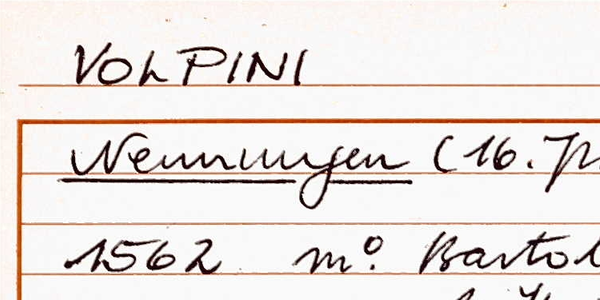 VOLPINI
Nennungen (16. J
1562 mº. Bartol